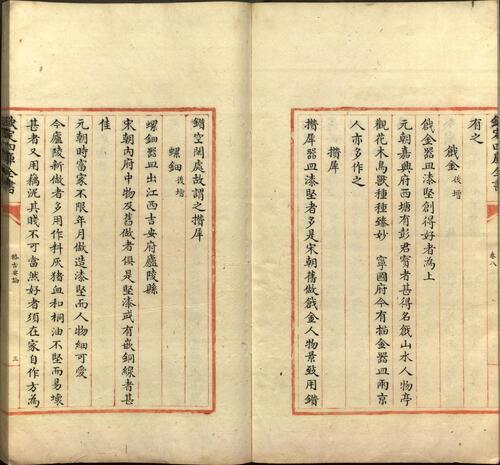 欽定四庫全書
卷八
有之
戧金 後增
戧金器皿漆堅創得好者為上
元朝嘉興府西塘有彭君寶者甚得名戧山水人物亭
觀花木鳥獸種種臻妙 寧國府今有描金器皿兩京
人亦多作之
攢犀
攢犀器皿漆堅者多是宋朝舊做戧金人物景致用鑽
鑽空閒處故謂之攢犀
螺鈿 後增
螺鈿器皿出江西吉安府廬陵縣
宋朝內府中物及舊做者俱是堅漆或有嵌銅線者甚
佳
元朝時富家不限年月做造漆堅而人物細可愛
今廬陵新做者多用作料灰猪血和桐油不堅而易壞
甚者又用藕泥其賤不可當然好者須在家自作方為
欽定四庫全書
格古要論
三